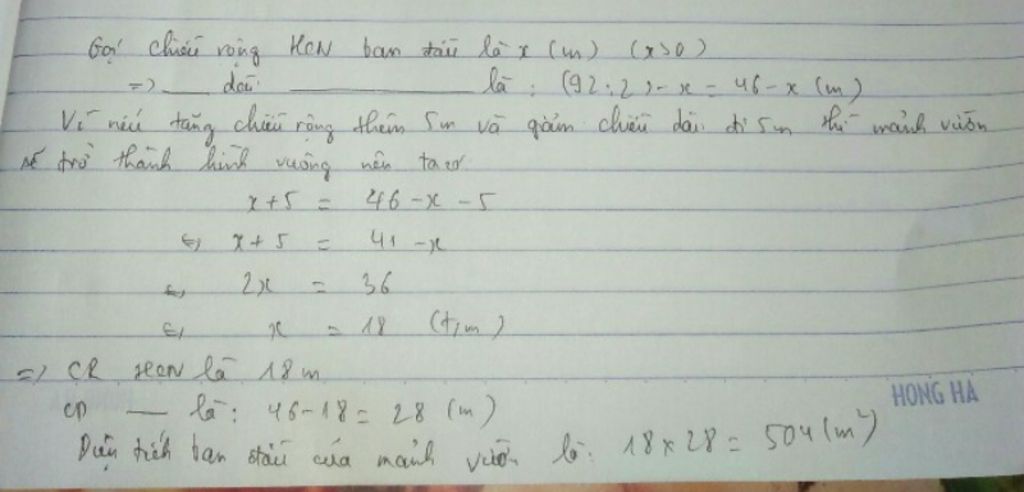 Gọi chiều rộng HCN ban đầu là x (m) (x>0)
=> ___ dài ___ là : (92:2) - x = 46 - x (m)
Vì nếu tăng chiều rộng thêm 5m và giảm chiều dài đi 5m thì mảnh vườn
sẽ trở thành hình vuông nên ta có
x+5 = 46 - x - 5
<=> x + 5 = 41 - x
<=> 2x = 36
<=> x = 18 (t/m)
=> CR HCN là 18m
CD ___ là: 46-18 = 28 (m)
HONG HA
Diện tích ban đầu của mảnh vườn là: 18 x 28 = 504 (m²)